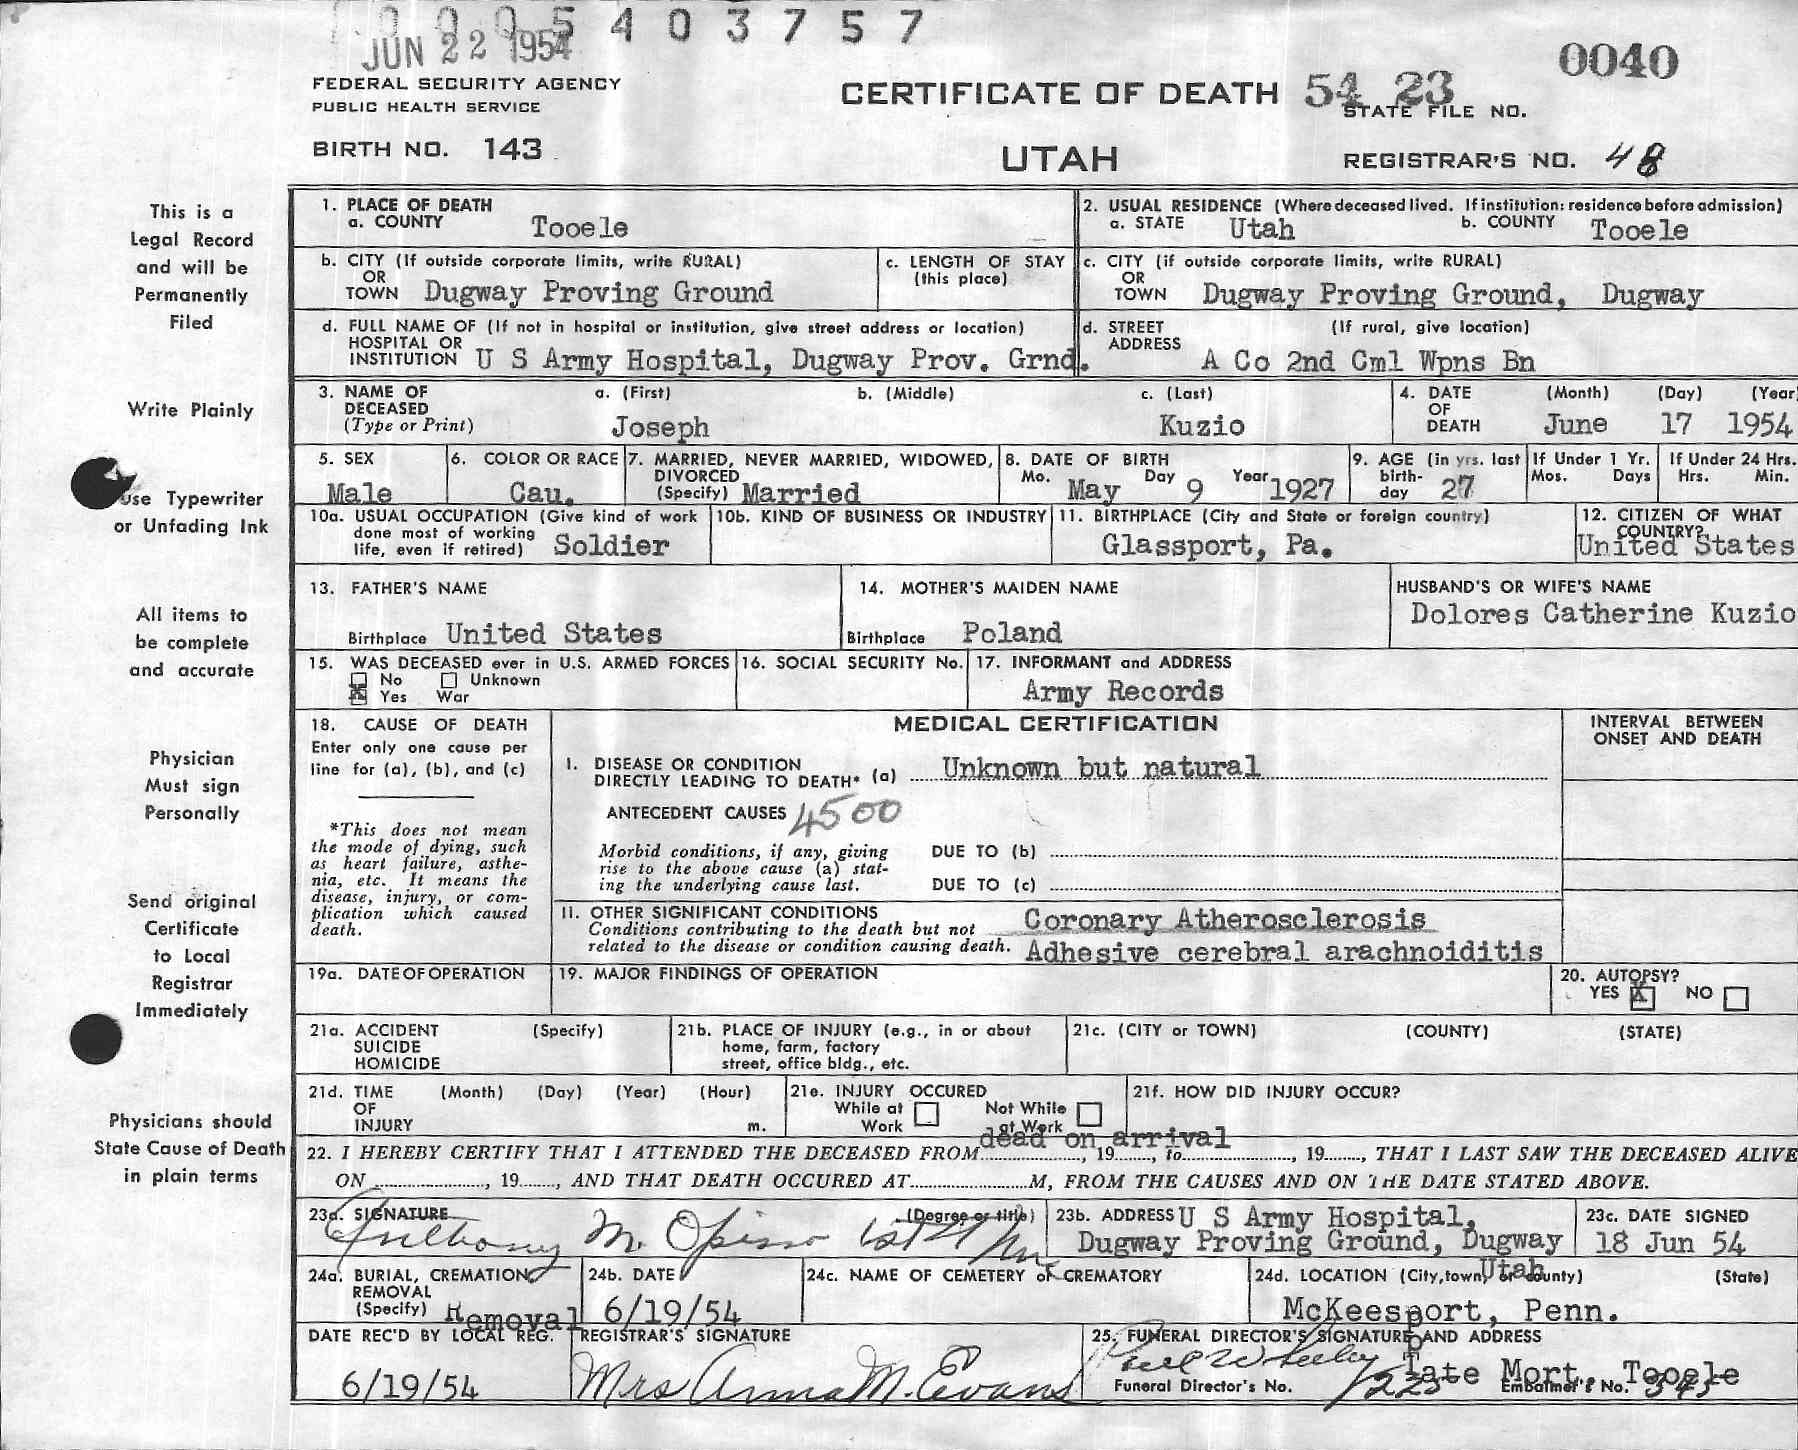 0005403757
JUN 22 1954
0040
FEDERAL SECURITY AGENCY
PUBLIC HEALTH SERVICE
CERTIFICATE OF DEATH 54 23
STATE FILE NO.
BIRTH NO. 143
UTAH
REGISTRAR'S NO. 48
This is a
Legal Record
and will be
Permanently
Filed
Write Plainly
Use Typewriter
or Unfading Ink
All items to
be complete
and accurate
Physician
Must sign
Personally
Send original
Certificate
to Local
Registrar
Immediately
Physicians should
State Cause of Death
in plain terms
1. PLACE OF DEATH
a. COUNTY Tooele
2. USUAL RESIDENCE (Where deceased lived. If institution: residence before admission)
a. STATE Utah b. COUNTY Tooele
b. CITY (If outside corporate limits, write RURAL)
OR
TOWN Dugway Proving Ground
c. LENGTH OF STAY
(this place)
c. CITY (if outside corporate limits, write RURAL)
OR
TOWN Dugway Proving Ground, Dugway
d. FULL NAME OF (If not in hospital or institution, give street address or location)
HOSPITAL OR
INSTITUTION U S Army Hospital, Dugway Prov. Grnd.
d. STREET (If rural, give location)
ADDRESS
A Co 2nd Cml Wpns Bn
3. NAME OF a. (First) b. (Middle) c. (Last)
DECEASED
(Type or Print) Joseph Kuzio
4. DATE (Month) (Day) (Year)
OF
DEATH June 17 1954
5. SEX
Male
6. COLOR OR RACE
Cau.
7. MARRIED, NEVER MARRIED, WIDOWED,
DIVORCED
(Specify) Married
8. DATE OF BIRTH
Mo. May Day 9 Year 1927
9. AGE (in yrs. last
birth-
day 27
If Under 1 Yr.
Mos. Days
If Under 24 Hrs.
Hrs. Min.
10a. USUAL OCCUPATION (Give kind of work
done most of working
life, even if retired) Soldier
10b. KIND OF BUSINESS OR INDUSTRY
11. BIRTHPLACE (City and State or foreign country)
Glassport, Pa.
12. CITIZEN OF WHAT
COUNTRY?
United States
13. FATHER'S NAME
Birthplace United States
14. MOTHER'S MAIDEN NAME
Birthplace Poland
HUSBAND'S OR WIFE'S NAME
Dolores Catherine Kuzio
15. WAS DECEASED ever in U.S. ARMED FORCES
No Unknown
X Yes War
16. SOCIAL SECURITY No.
17. INFORMANT and ADDRESS
Army Records
18. CAUSE OF DEATH
Enter only one cause per
line for (a), (b), and (c)
*This does not mean
the mode of dying, such
as heart failure, asthe-
nia, etc. It means the
disease, injury, or com-
plication which caused
death.
MEDICAL CERTIFICATION
INTERVAL BETWEEN
ONSET AND DEATH
I. DISEASE OR CONDITION
DIRECTLY LEADING TO DEATH* (a) Unknown but natural
ANTECEDENT CAUSES 4500
Morbid conditions, if any, giving
rise to the above cause (a) stat-
ing the underlying cause last.
DUE TO (b)
DUE TO (c)
II. OTHER SIGNIFICANT CONDITIONS
Conditions contributing to the death but not
related to the disease or condition causing death.
Coronary Atherosclerosis
Adhesive cerebral arachnoiditis
19a. DATE OF OPERATION
19. MAJOR FINDINGS OF OPERATION
20. AUTOPSY?
YES X NO
21a. ACCIDENT (Specify)
SUICIDE
HOMICIDE
21b. PLACE OF INJURY (e.g., in or about
home, farm, factory
street, office bldg., etc.
21c. (CITY or TOWN) (COUNTY) (STATE)
21d. TIME (Month) (Day) (Year) (Hour)
OF
INJURY m.
21e. INJURY OCCURED
While at Not While
Work at Work
21f. HOW DID INJURY OCCUR?
dead on arrival
22. I HEREBY CERTIFY THAT I ATTENDED THE DECEASED FROM, 19, to, 19, THAT I LAST SAW THE DECEASED ALIVE
ON, 19, AND THAT DEATH OCCURED AT M, FROM THE CAUSES AND ON THE DATE STATED ABOVE.
23a. SIGNATURE (Degree or title)
Anthony M. Opisso 1st Lt
23b. ADDRESS U S Army Hospital,
Dugway Proving Ground, Dugway
Utah
23c. DATE SIGNED
18 Jun 54
24a. BURIAL, CREMATION
REMOVAL
(Specify) Removal
24b. DATE
6/19/54
24c. NAME OF CEMETERY or CREMATORY
24d. LOCATION (City, town, or county) (State)
McKeesport, Penn.
DATE REC'D BY LOCAL REG.
6/19/54
REGISTRAR'S SIGNATURE
Mrs Anna M. Evans
25. FUNERAL DIRECTOR'S SIGNATURE AND ADDRESS
Tate Mort. Tooele
Funeral Director's No. 225 Embalmer's No.